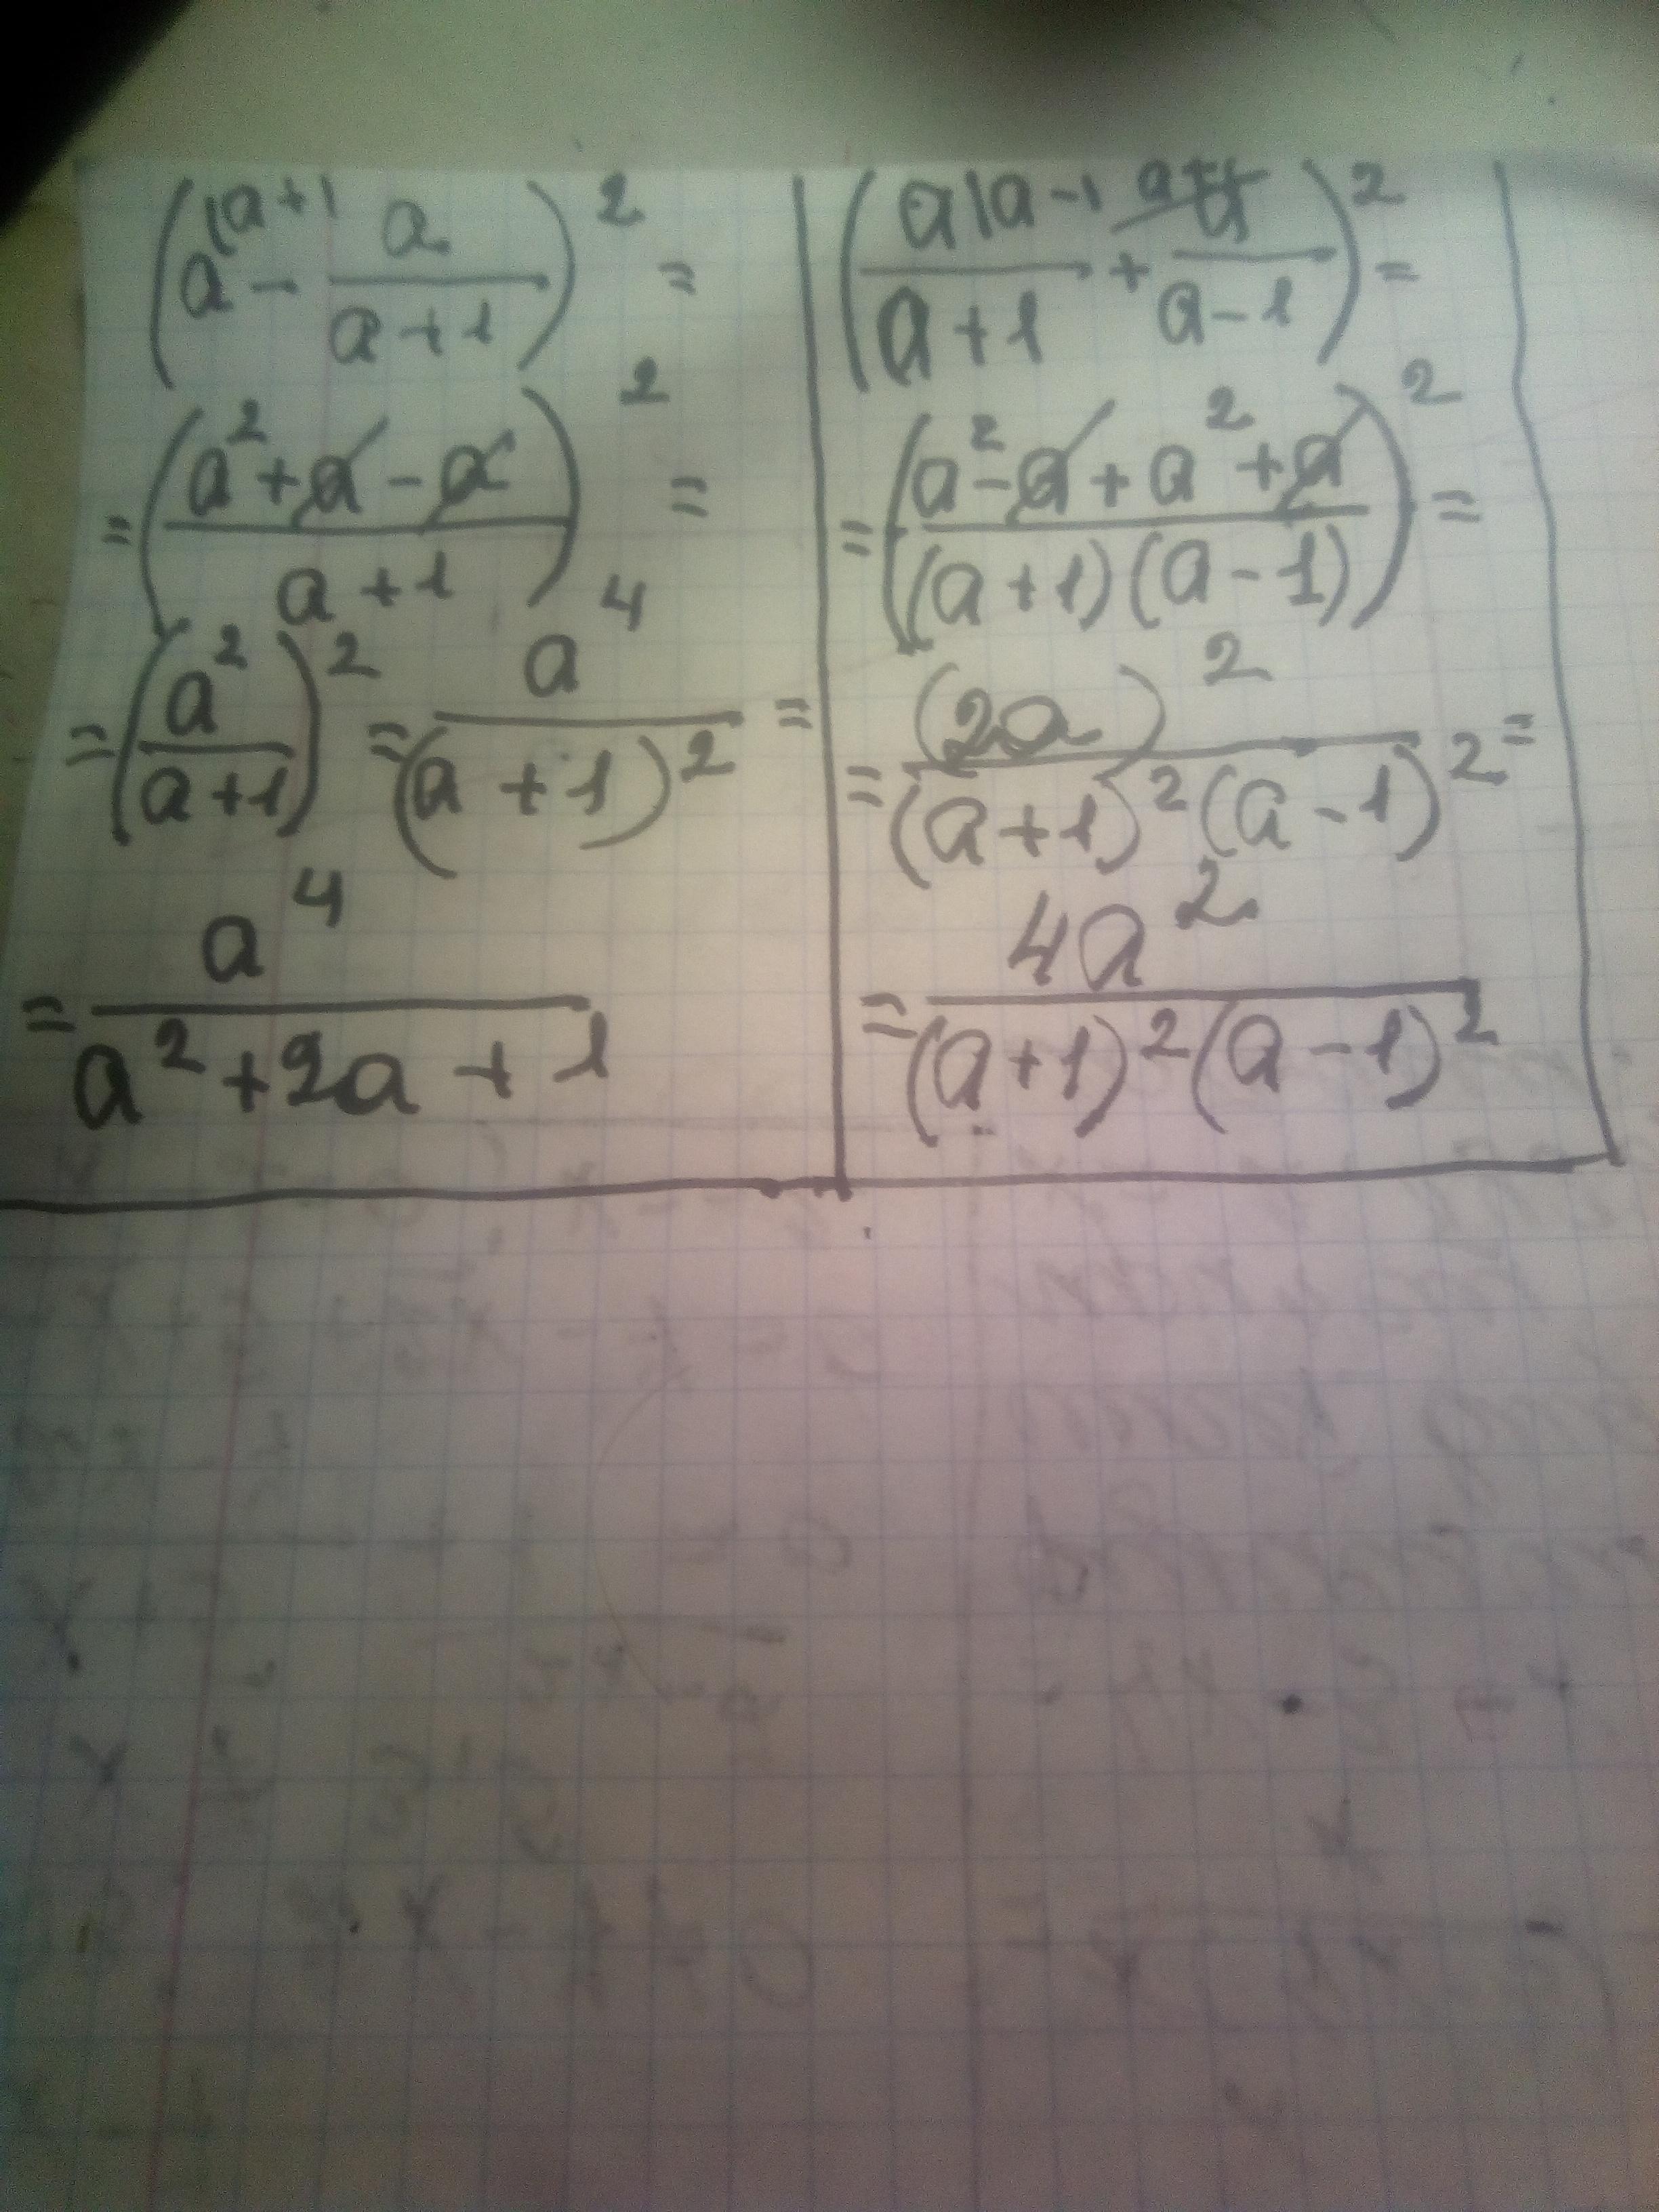 (a|a+1 - a/(a+1))² =
= ((a² + a - a)/(a+1))² =
= (a²/(a+1))² = a⁴/(a+1)² =
= a⁴/(a² + 2a + 1)
(a|a-1/(a+1) + a/(a-1))² =
= ((a² - a + a² + a)/((a+1)(a-1)))² =
= (2a)²/((a+1)²(a-1)²) =
= 4a²/((a+1)²(a-1)²)